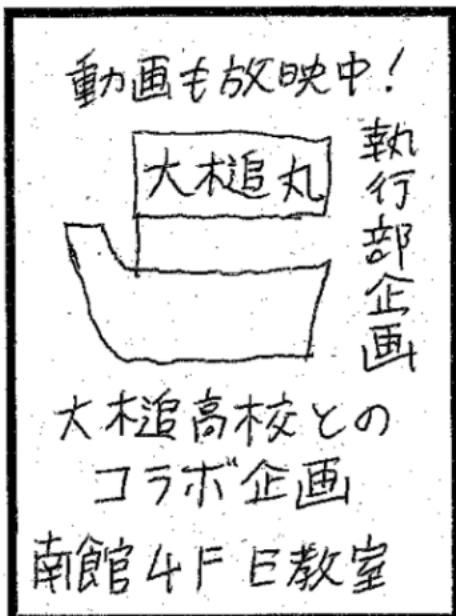 動画も放映中!
大槌丸
執行部企画
大槌高校との
コラボ企画
南館4F E教室